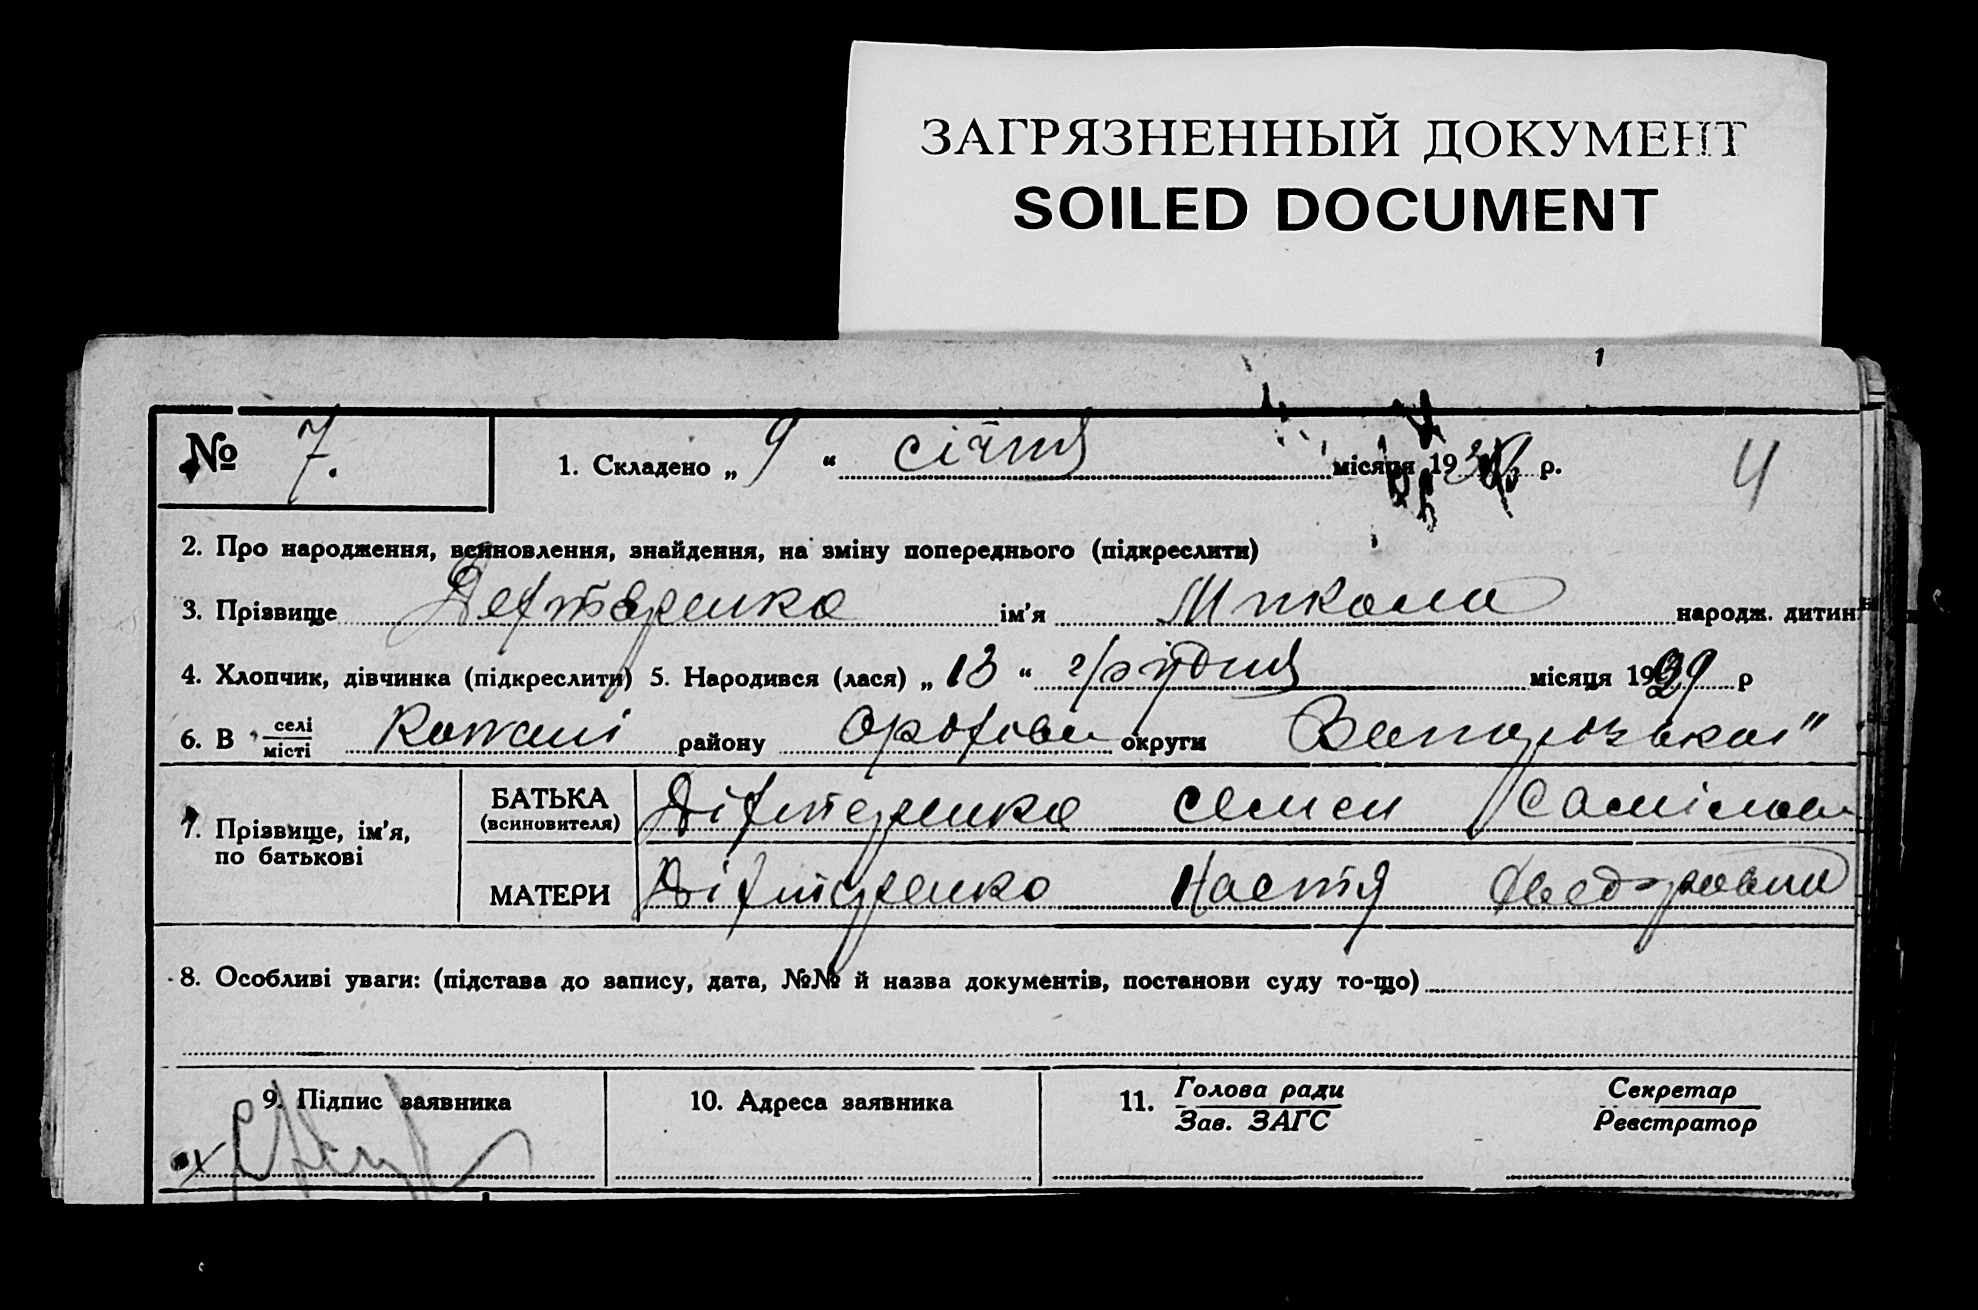 ЗАГРЯЗНЕННЫЙ ДОКУМЕНТ
SOILED DOCUMENT
1
№ 7.
1. Складено „ 9 “ січня місяця 193 р.
4
2. Про народження, всиновлення, знайдення, на зміну попереднього (підкреслити)
3. Прізвище Дегтяренко ім’я Микола народж. дитин
4. Хлопчик, дівчинка (підкреслити) 5. Народився (лася) „ 13 “ грудня місяця 1929 р
6. В селі / місті району округи
7. Прізвище, ім’я, по батькові
БАТЬКА (всиновителя) Дігтеренко Семен
МАТЕРИ Дігтеренко Настя Федоровна
8. Особливі уваги: (підстава до запису, дата, №№ й назва документів, постанови суду то-що)
9. Підпис заявника
10. Адреса заявника
11. Голова ради / Зав. ЗАГС
Секретар / Реєстратор